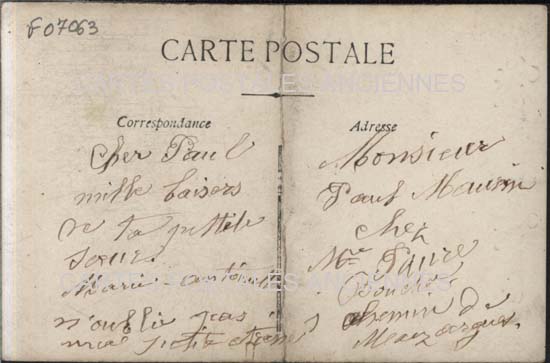 F07063
CARTE POSTALE
CARTES POSTALES ANCIENNES
Correspondance
Cher Paul
mille baisers
de ta petite
soeur
Marie
n'oublie pas
ma petite
Adresse
Monsieur
Paul Maurin
chez
Mr Faure
Boucher
chemin de
Mazargues
CARTES POSTALES ANCIENNES